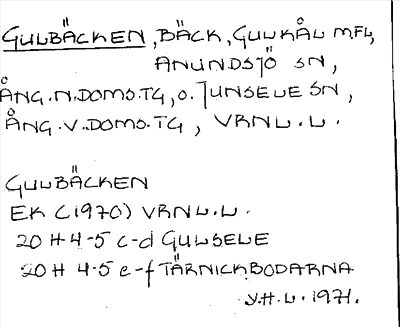 GULBÄCKEN, BÄCK, GULKÅL M.FL,
ANUNDSJÖ SN,
ÅNG.N.DOMS.TG, O. JUNSELE SN,
ÅNG.V.DOMS.TG, VRNL.L.
GULBÄCKEN
EK (1970) VRNL.L.
20 H 4-5 c-d GULSELE
20 H 4-5 e-f TÄRNICKBODARNA
Y.H.L. 1971.